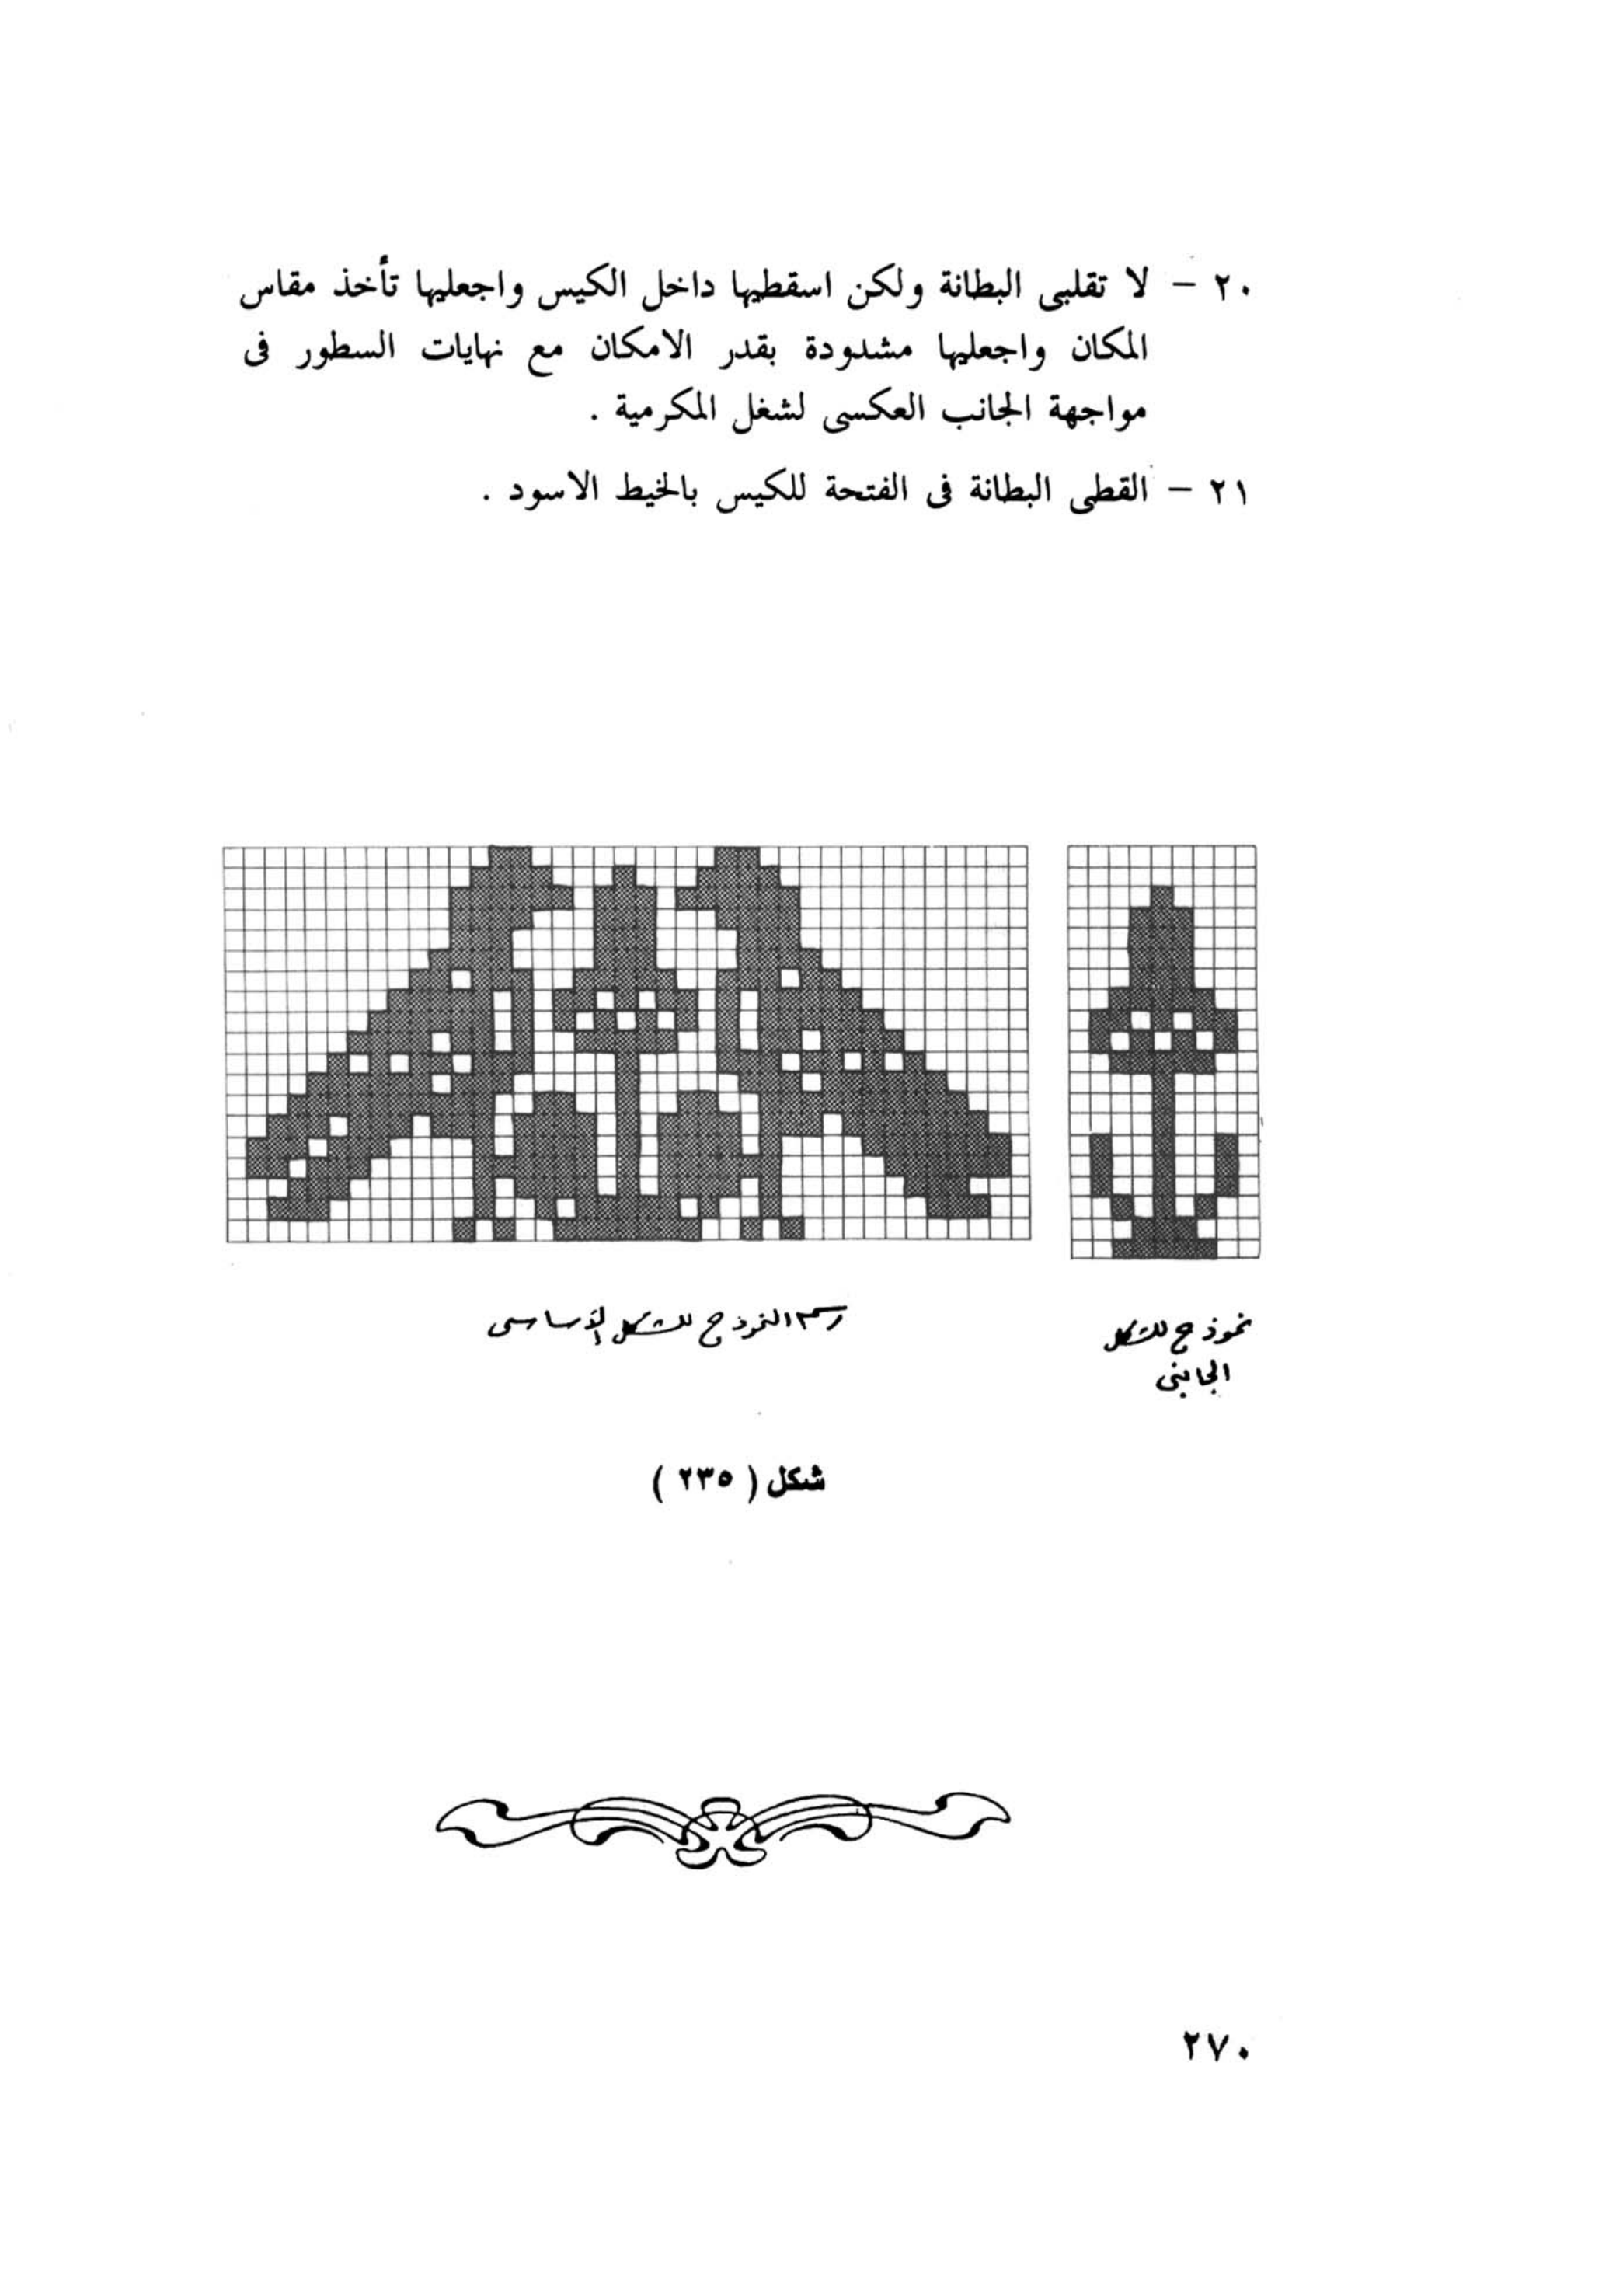 ٢٠ – لا تقلبى البطانة ولكن اسقطيها داخل الكيس واجعليها تأخذ مقاس
المكان واجعليها مشدودة بقدر الامكان مع نهايات السطور فى
مواجهة الجانب العكسى لشغل المكرمية .
٢١ – القطى البطانة فى الفتحة للكيس بالخيط الاسود .
نموذج للشكل
الجانبى
رسم النموذج للشكل الأساسى
شكل ( ٢٣٥ )
٢٧٠